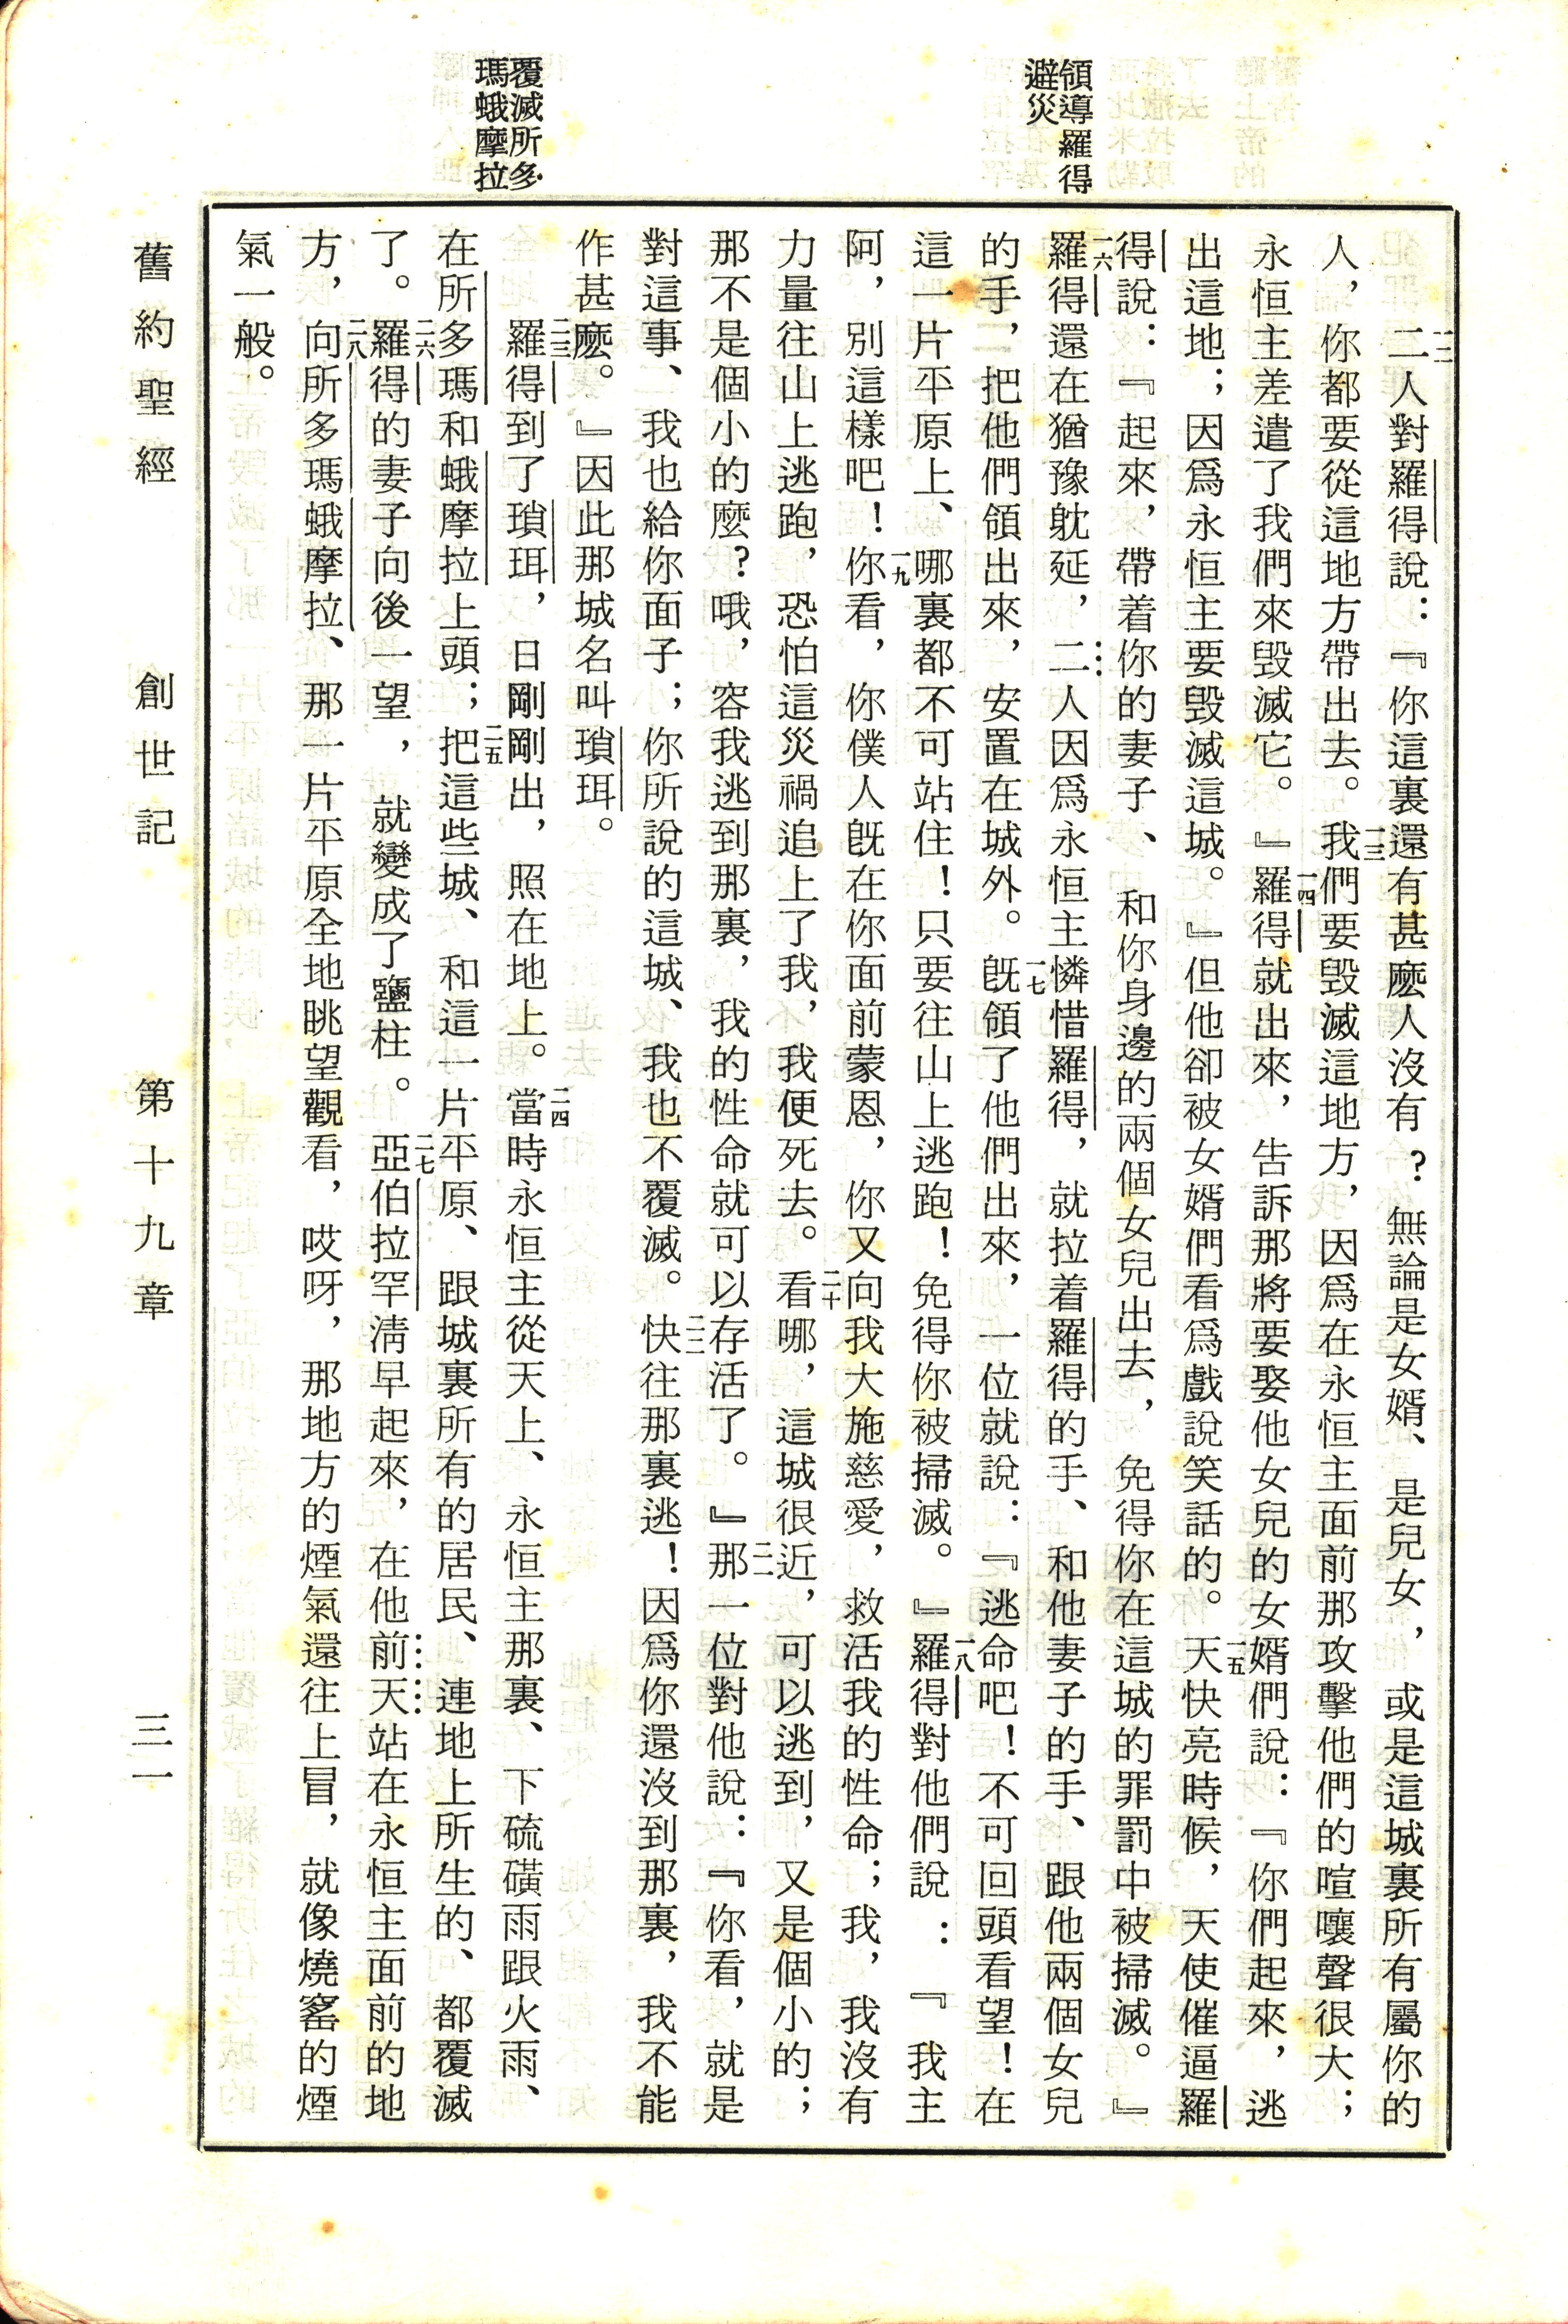 領導羅得
避災
覆滅所多
瑪蛾摩拉
一二二人對羅得說：『你這裏還有甚麼人沒有？無論是女婿、是兒女，或是這城裏所有屬你的
人，你都要從這地方帶出去。一三我們要毀滅這地方，因爲在永恒主面前那攻擊他們的喧嚷聲很大；
永恒主差遣了我們來毀滅它。』一四羅得就出來，告訴那將要娶他女兒的女婿們說：『你們起來，逃
出這地；因爲永恒主要毀滅這城。』但他卻被女婿們看爲戲說笑話的。一五天快亮時候，天使催逼羅
得說：『起來，帶着你的妻子、和你身邊的兩個女兒出去，免得你在這城的罪罰中被掃滅。』
一六羅得還在猶豫躭延，二人因爲永恒主憐惜羅得，就拉着羅得的手、和他妻子的手、跟他兩個女兒
的手，把他們領出來，安置在城外。一七旣領了他們出來，一位就說：『逃命吧！不可回頭看望！在
這一片平原上、哪裏都不可站住！只要往山上逃跑！免得你被掃滅。』一八羅得對他們說：『我主
阿，別這樣吧！一九你看，你僕人旣在你面前蒙恩，你又向我大施慈愛，救活我的性命；我，我沒有
力量往山上逃跑，恐怕這災禍追上了我，我便死去。二十看哪，這城很近，可以逃到，又是個小的；
那不是個小的麼？哦，容我逃到那裏，我的性命就可以存活了。』二一那一位對他說：『你看，就是
對這事、我也給你面子；你所說的這城、我也不覆滅。二二快往那裏逃！因爲你還沒到那裏，我不能
作甚麼。』因此那城名叫瑣珥。
二三羅得到了瑣珥，日剛剛出，照在地上。二四當時永恒主從天上、永恒主那裏、下硫磺雨跟火雨、
在所多瑪和蛾摩拉上頭；二五把這些城、和這一片平原、跟城裏所有的居民、連地上所生的、都覆滅
了。二六羅得的妻子向後一望，就變成了鹽柱。二七亞伯拉罕淸早起來，在他前天站在永恒主面前的地
方，二八向所多瑪蛾摩拉、那一片平原全地眺望觀看，哎呀，那地方的煙氣還往上冒，就像燒窰的煙
氣一般。
舊約聖經　創世記　第十九章　三一